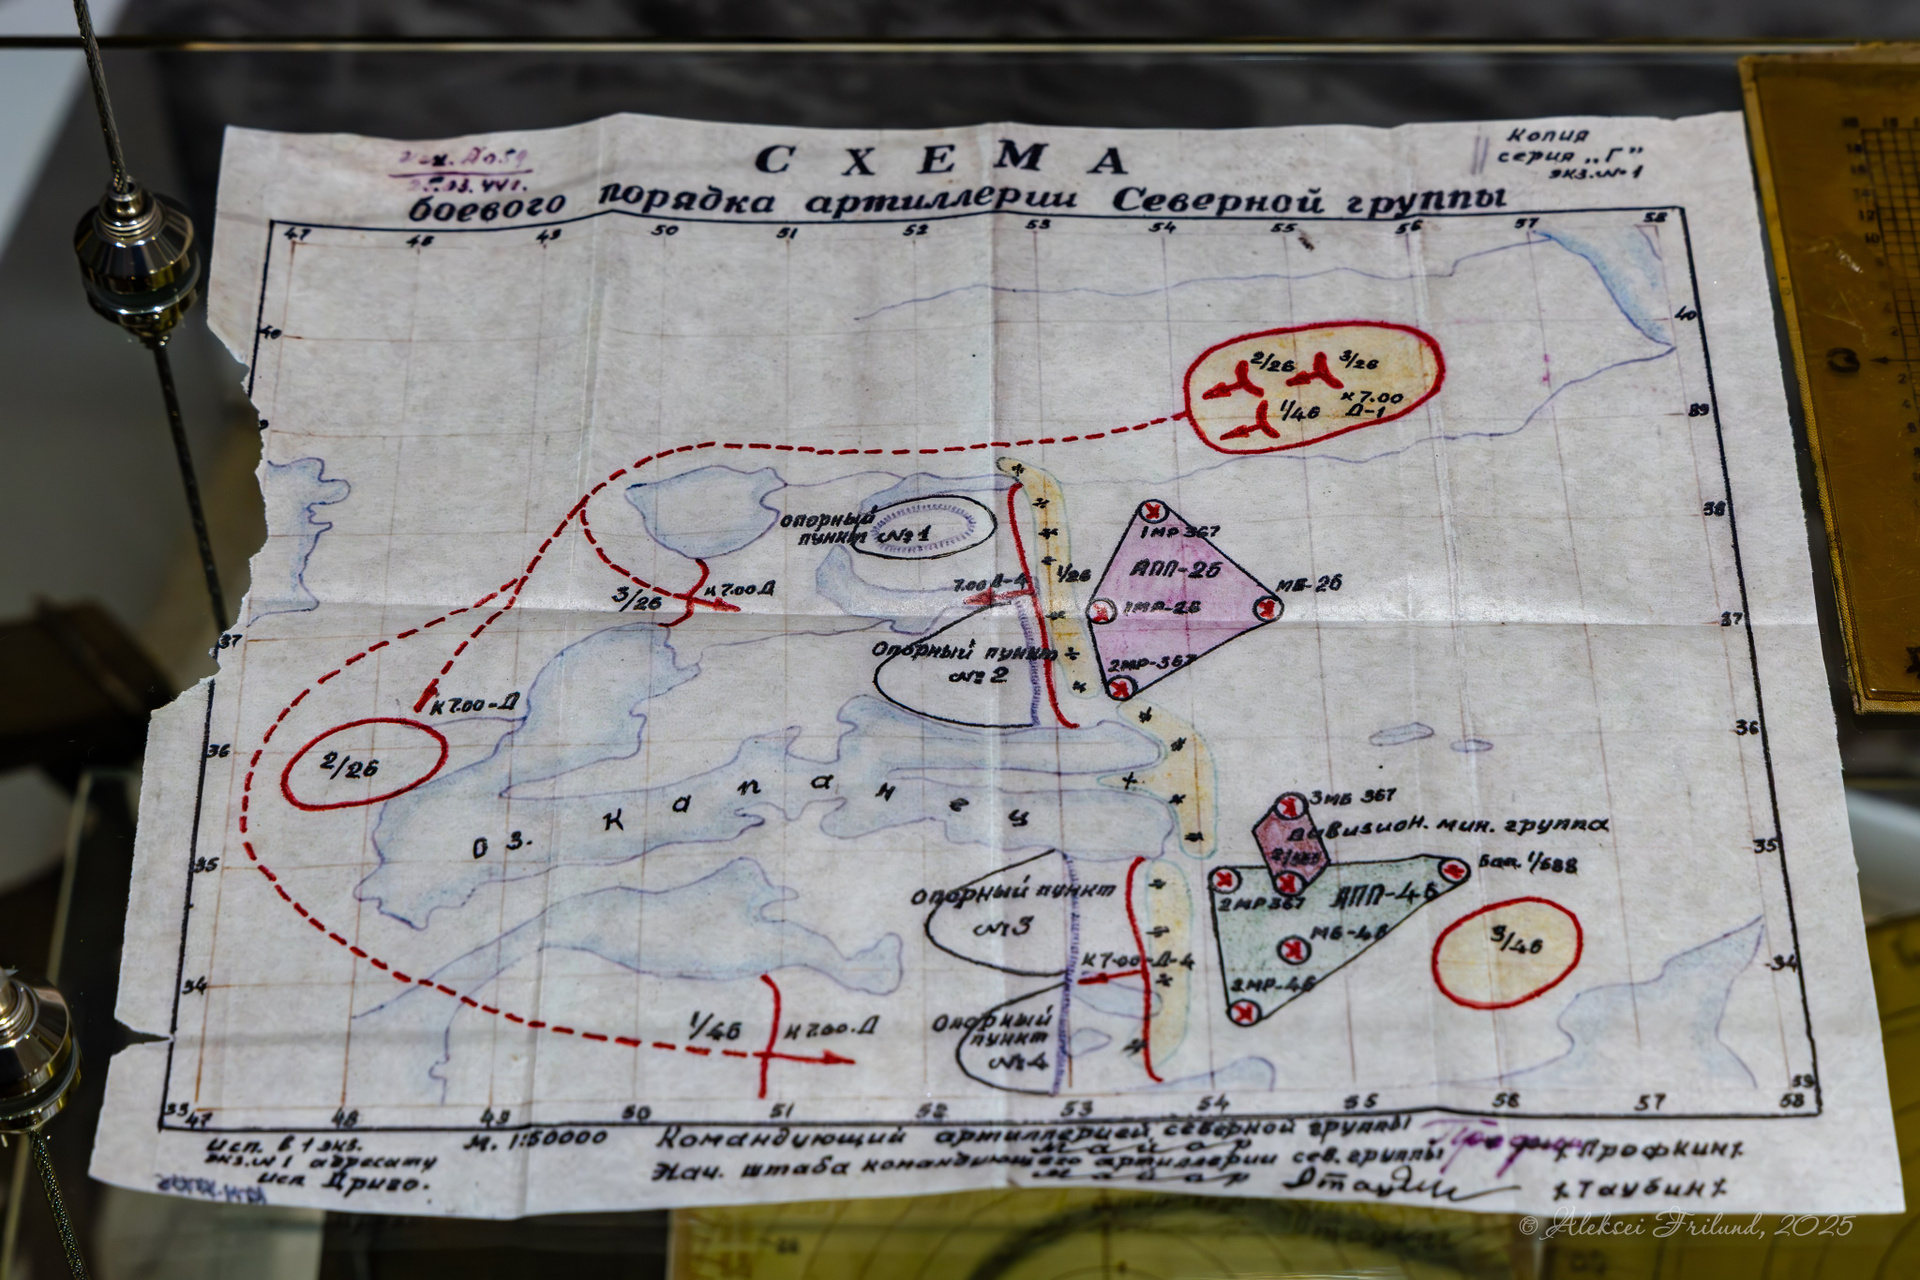 С Х Е М А
боевого порядка артиллерии Северной группы
Копия
серия „Г"
экз. №1
47 48 49 50 51 52 53 54 55 56 57 58
40 40
39
2/26 3/26
к 7.00
1/46 Д-1
38
опорный
пункт №1
1МР 367
АПП-26
МБ-26
1МР-26
2МР-367
1/26
7.00 Д-4
3/26 к 7.00 Д
37 37
Опорный пункт
№ 2
к 7.00-Д
2/26
36 36
оз. Капанец
3МБ 367
дивизион. мин. группа
35 35
Бат. 1/688
2МР367 АПП-46
МБ-46
2МР-46
3/46
опорный пункт
№3
к 7.00-Д-4
34 34
1/46 к 7.00.Д
Опорный
пункт
№4
33 33
47 48 49 50 51 52 53 54 55 56 57 58
Исп. в 1 экз.
экз. №1 адресату
исп
М. 1:50000
Командующий артиллерией северной группы
майор /Профкин/
Нач. штаба командующего артиллерии сев. группы
майор /Таубин/
© Aleksei Frilund, 2025